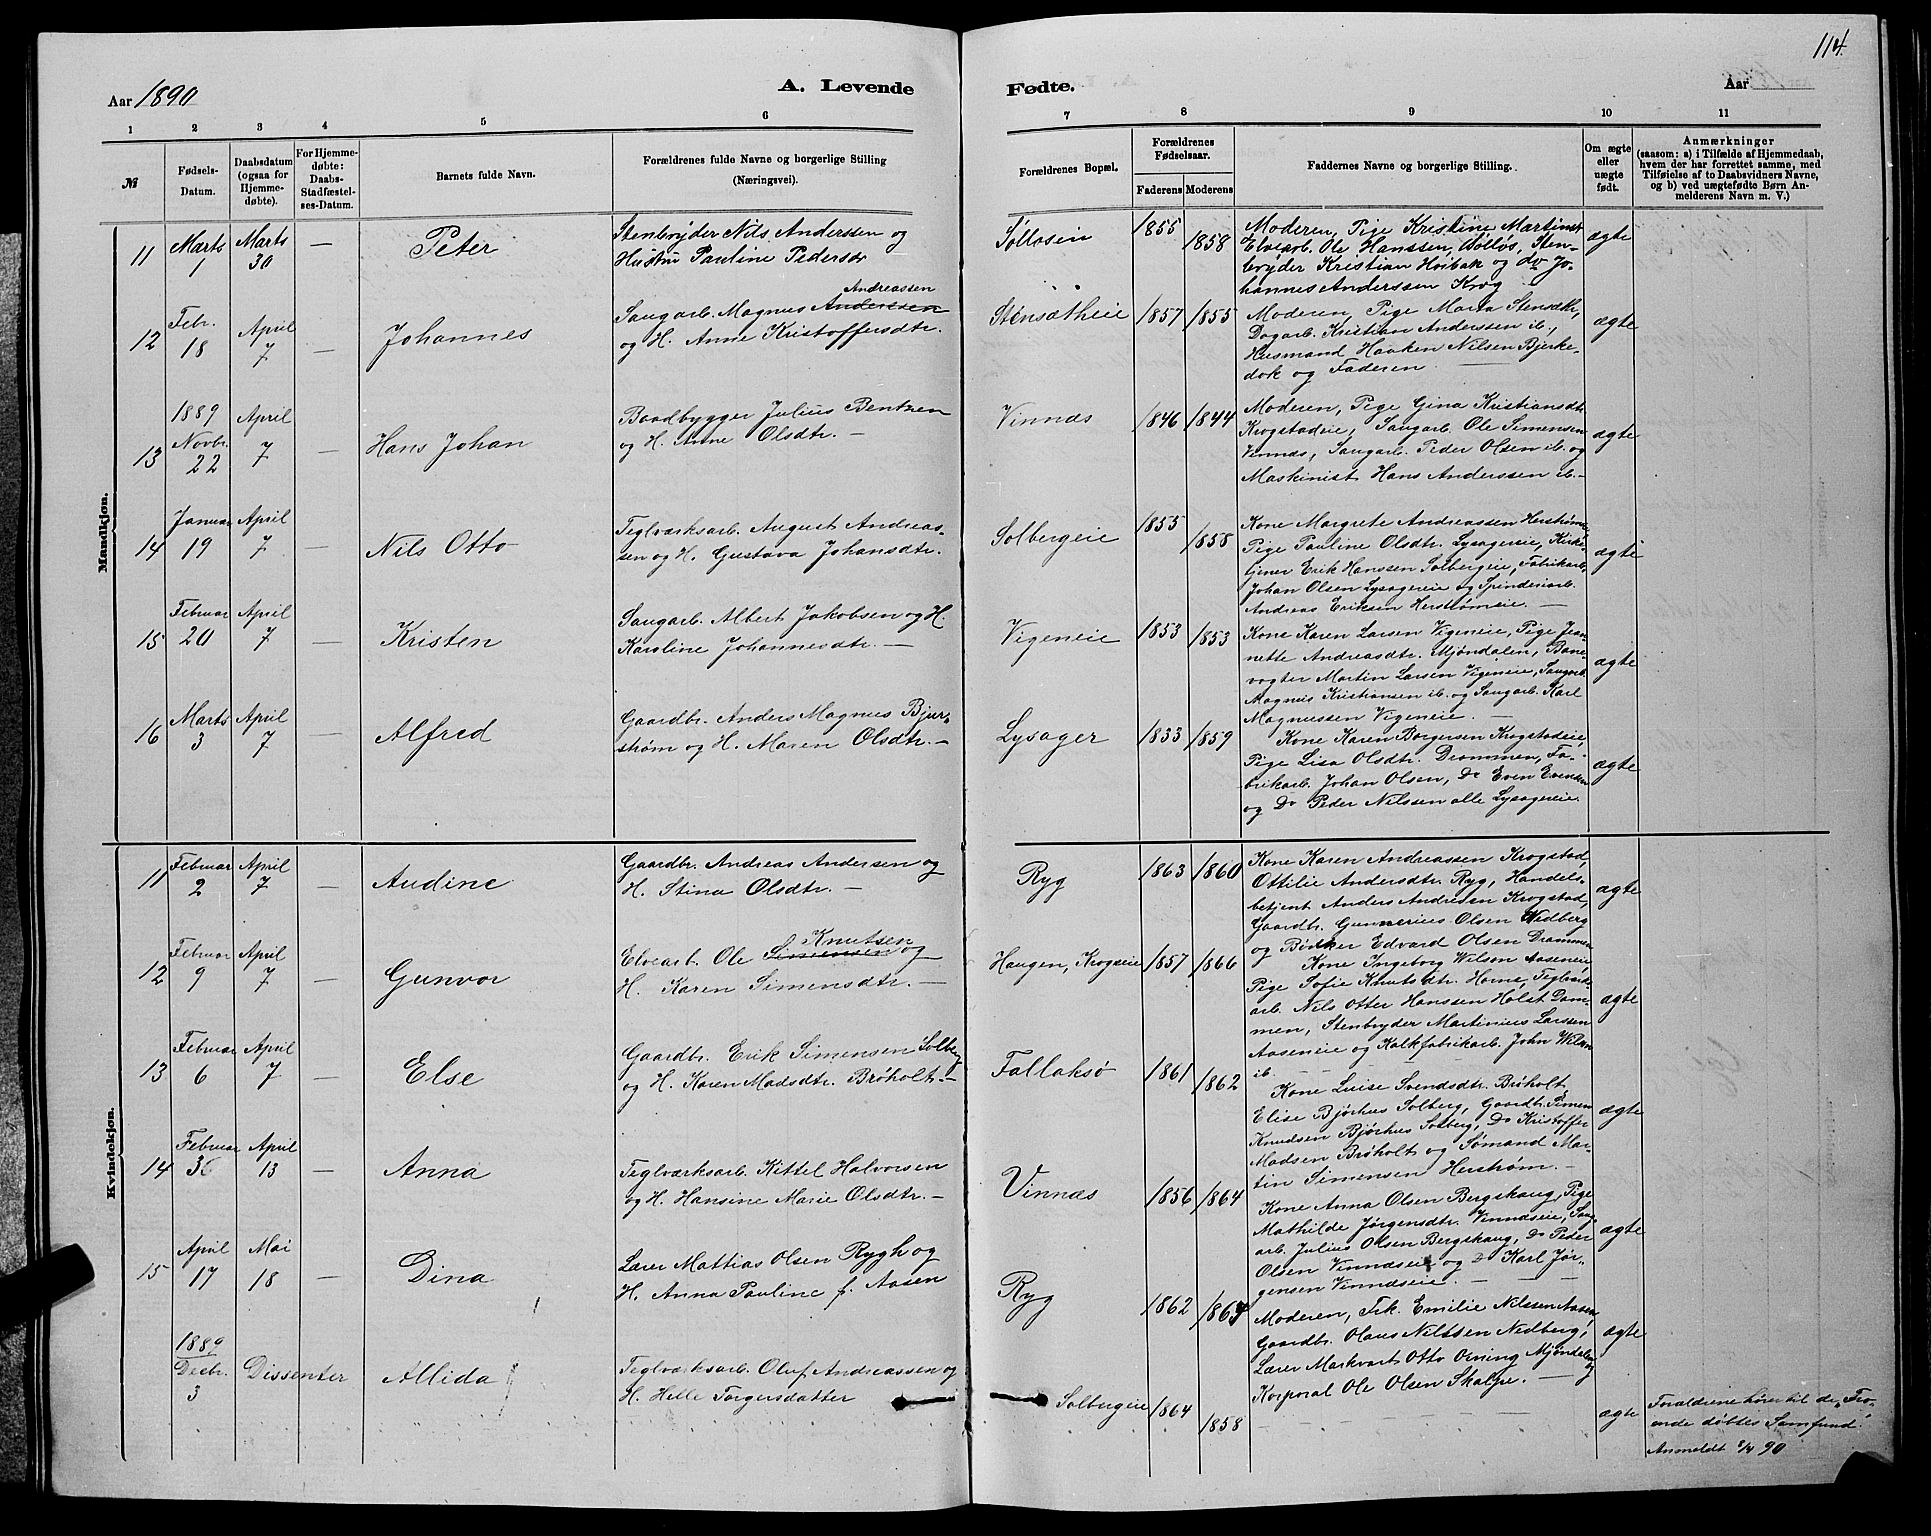 114.
Aar 1890
A. Levende
Fødte.
Aar
1 2 3 4 5 6 7 8 9 10 11
№
Fødsels-
Datum.
Daabsdatum
(ogsaa for
Hjemme-
døbte).
For Hjemme-
døbte:
Daabs-
Stadfæstel-
ses-Datum.
Barnets fulde Navn.
Forældrenes fulde Navne og borgerlige Stilling
(Næringsvei).
Forældrenes Bopæl.
Forældrenes
Fødselsaar.
Faderens Moderens
Faddernes Navne og borgerlige Stilling.
Om ægte
eller
uægte
født.
Anmærkninger
(saasom: a) i Tilfælde af Hjemmedaab,
hvem der har forrettet samme, med
Tilføielse af to Daabsvidners Navne,
og b) ved uægtefødte Børn An-
melderens Navn m. V.)
Mandkjøn.
11
Marts
1
Marts
30
—
Peter
Stenbryder Nils Anderssen og
Hustru Pauline Pedersdr
Søllosien
1855
1858
Moderen, Pige Kristine Martinsdt
Elvearb. Ole Hanssen, Sølløs, Sten-
bryder Kristian Høibak og do Jo-
hannes Anderssen Krog
ægte
12
Febr.
18
April
7
—
Johannes
Andreassen
Saugarb. Magnus Anderssen
og H. Anne Kristoffersdtr.
Stensætheie
1857
1855
Moderen, Pige Marta Stensæth,
Dagarb. Kristian Anderssen ib.,
Husmand Haaken Nilsen Bjerke-
dok og Faderen
ægte
13
1889
Novbr.
22
April
7
—
Hans Johan
Baadbygger Julius Bentzen
og H. Anne Olsdtr. —
Vinnæs
1846
1844
Moderen, Pige Gina Kristiansdt
Krogstadeie, Saugarb. Ole Simensen
Vinnæs, Saugarb. Peder Olsen ib. og
Maskinist Hans Anderssen ib.—
ægte
14
Januar
19
April
7
—
Nils Otto
Teglværksarb. August Andreas-
sen og H. Gustava Johansdtr.
Solbergeie
1855
1858
Kone Margrete Andreassen Herstrøm,
Pige Pauline Olsdtr. Lysagereie, Kirke-
tjener Erik Hanssen Solbergeie, Fabrikarb.
Johan Olsen Lysagereie og Spinderiarb.
Andreas Eriksen Herstrømeie. —
ægte
15
Februar
20
April
7
—
Kristen
Saugarb. Albert Jakobsen og H.
Karoline Johannesdtr. —
Vigeneie
1853
1853
Kone Karen Larsen Vigeneie, Pige Jean-
nette Andreasdtr. Mjøndalen, Bane-
vogter Martin Larsen Vigeneie, Saugarb.
Magnus Kristiansen ib. og Saugarb. Karl
Magnussen Vigeneie. —
ægte
16
Marts
3
April
7
—
Alfred
Gaardbr. Anders Magnus Bjur-
strøm og H. Maren Olsdtr.—
Lysager
1833
1859
Kone Karen Borgersen Krogstadeie,
Pige Lisa Olsdtr. Drammen, Fa-
brikarb. Johan Olsen, Do Even Evensen
og Do Peder Nilssen alle Lysagereie.
ægte
Kvindekjøn.
11
Februar
2
April
7
—
Audine
Gaardbr. Andreas Andersen og
H. Stina Olsdtr. —
Ryg
1863
1860
Kone Karen Andreassen Krogstad,
Ottilie Andersdtr. Ryg, Handels-
betjent Anders Andresen Krogstad,
Gaardbr. Gunnerius Olsen Nedberg
og Bødker Edvard Olsen Drammen
ægte
12
Februar
9
April
7
—
Gunvor
Knutsen
Elvearb. Ole Simensen og
H. Karen Simensdtr. —
Haugen, Krogseie
1857
1866
Kone Ingeborg Wilson Aaseneie
Pige Sofie Knutsdtr. Horne, Teglværk-
arb. Nils Otter Hanssen Holst Dram-
men, Stenbryder Martinius Larssen
Aaseneie og Kalkfabrikarb. John Wilson
ib.
ægte
13
Februar
6
April
7
—
Else
Gaardbr. Erik Simensen Solberg
og H. Karen Madsdtr. Brøholt.—
Follaksø
1861
1862
Kone Luise Svendsdtr. Brøholt
Elise Bjørhus Solberg, Gaardbr. Simen
Knudsen Bjørhus Solberg, Do Kristoffer
Madsen Brøholt og Sømand Mar-
tin Simensen Herstrøm. —
ægte
14
Februar
April
13
—
Anna
Teglværksarb. Kittel Halvorsen
og H. Hansine Marie Olsdtr. —
Vinnæs
1856
1864
Kone Anna Olsen Bergskaug, Pige
Mathilde Jørgensdtr. Vinnæseie, Saug
arb. Julius Olsen Bergskaug, Do Peder
Olsen Vinnæseie og Do Karl Jør-
gensen Vinnæseie. —
ægte
15
April
17
Mai
18
—
Dina
Lærer Mattias Olsen Rygh og
H. Anna Pauline f. Aasen
Ryg
1862
Moderen, Frk. Emilie Nilssen Aasen,
Gaardbr. Olaus Nilssen Nedberg,
Lærer Markvart Otto Orning Mjøndalen og
Korporal Ole Olsen Skalpe. —
ægte
1889
Decbr.
3
Dissenter
Allida
Teglværksarb. Oluf Andreassen og
H. Helle Torgersdatter
Solbergeie
1864
1858
ægte
Forældrene hører til de „Tro-
ende døbtes Samfund."
Anmeldt 8/4 90